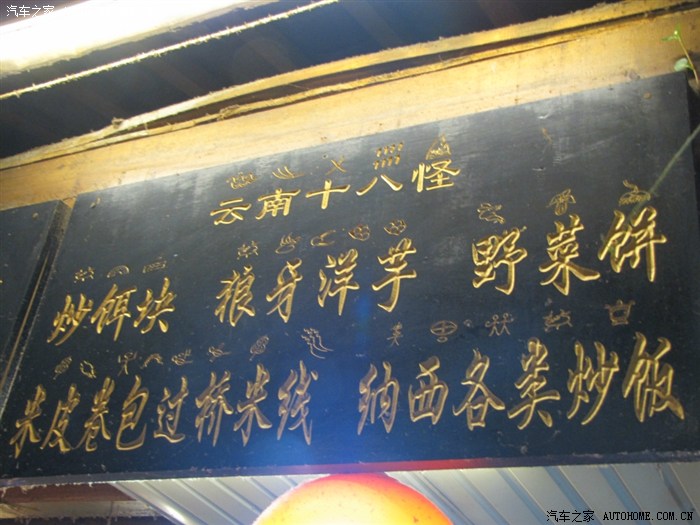 汽车之家
云南十八怪
炒饵块 狼牙洋芋 野菜饼
米皮卷包过桥米线 纳西各类炒饭
汽车之家 AUTOHOME.COM.CN